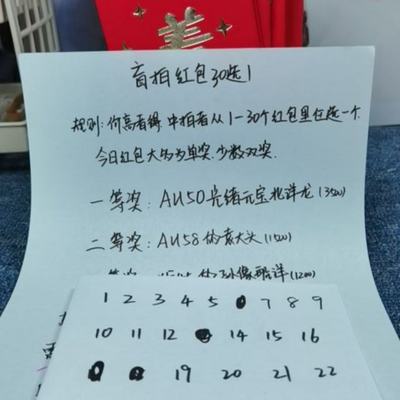 盲拍红包30选1
规则:价高者得.中拍者从1-30个红包里任选一个.
今日红包大多为单奖.少数双奖.
一等奖:AU50光绪元宝北洋龙(3500)
二等奖:AU58的袁大头(1500)
1 2 3 4 5 7 8 9
10 11 12 14 15 16
19 20 21 22